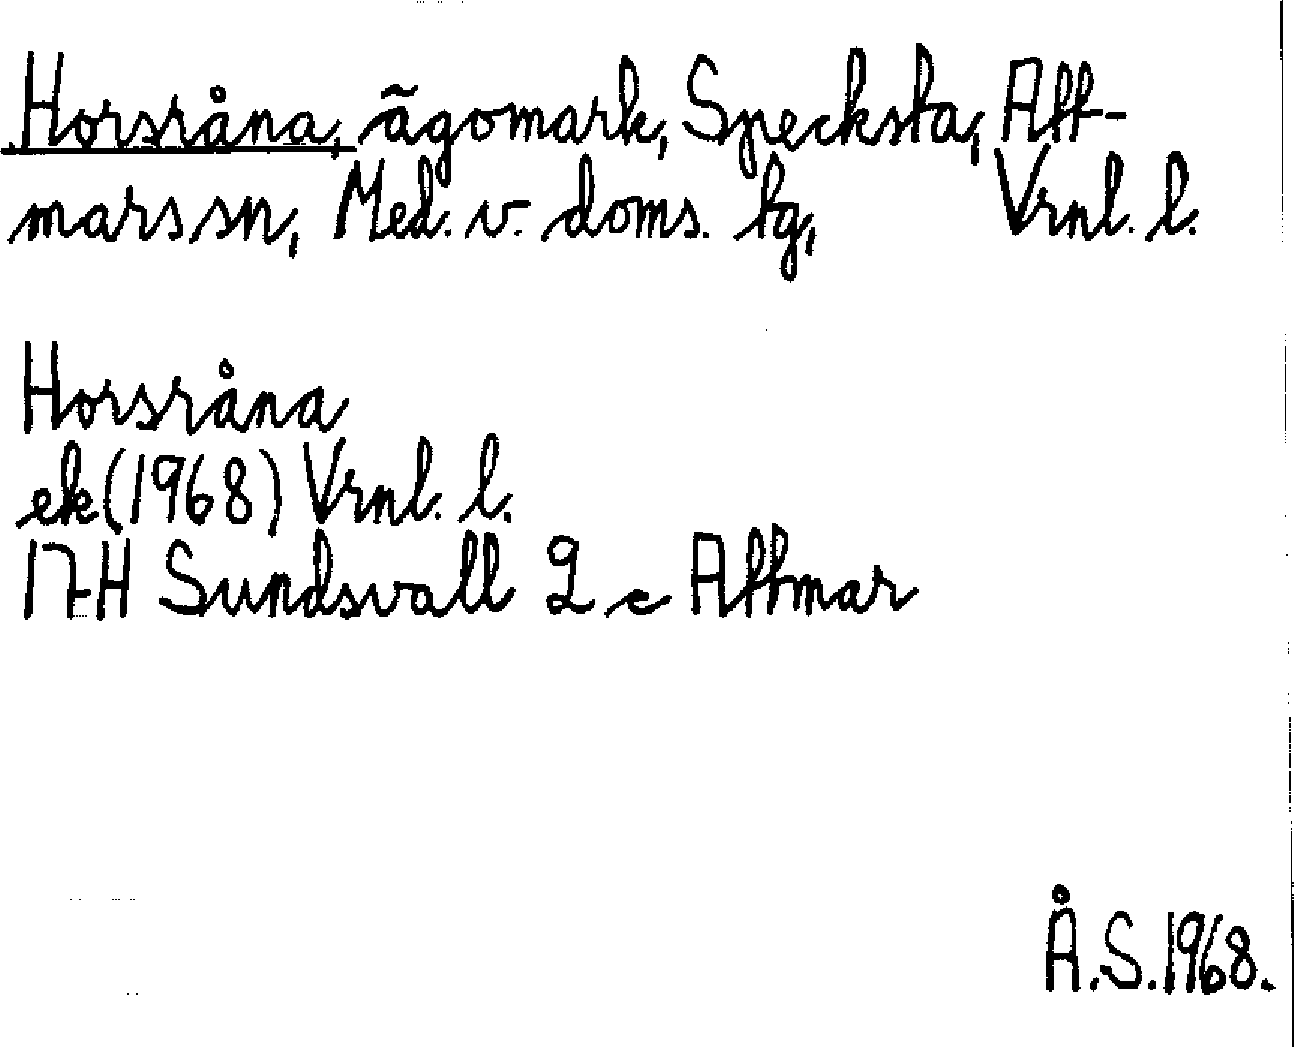 Horsråna, ägomark, Specksta, Att-
mars sn, Med. v. doms. tg, Vrnl. l.
Horsråna
ek (1968) Vrnl. l.
17H Sundsvall 2 c Attmar
Å.S. 1968.